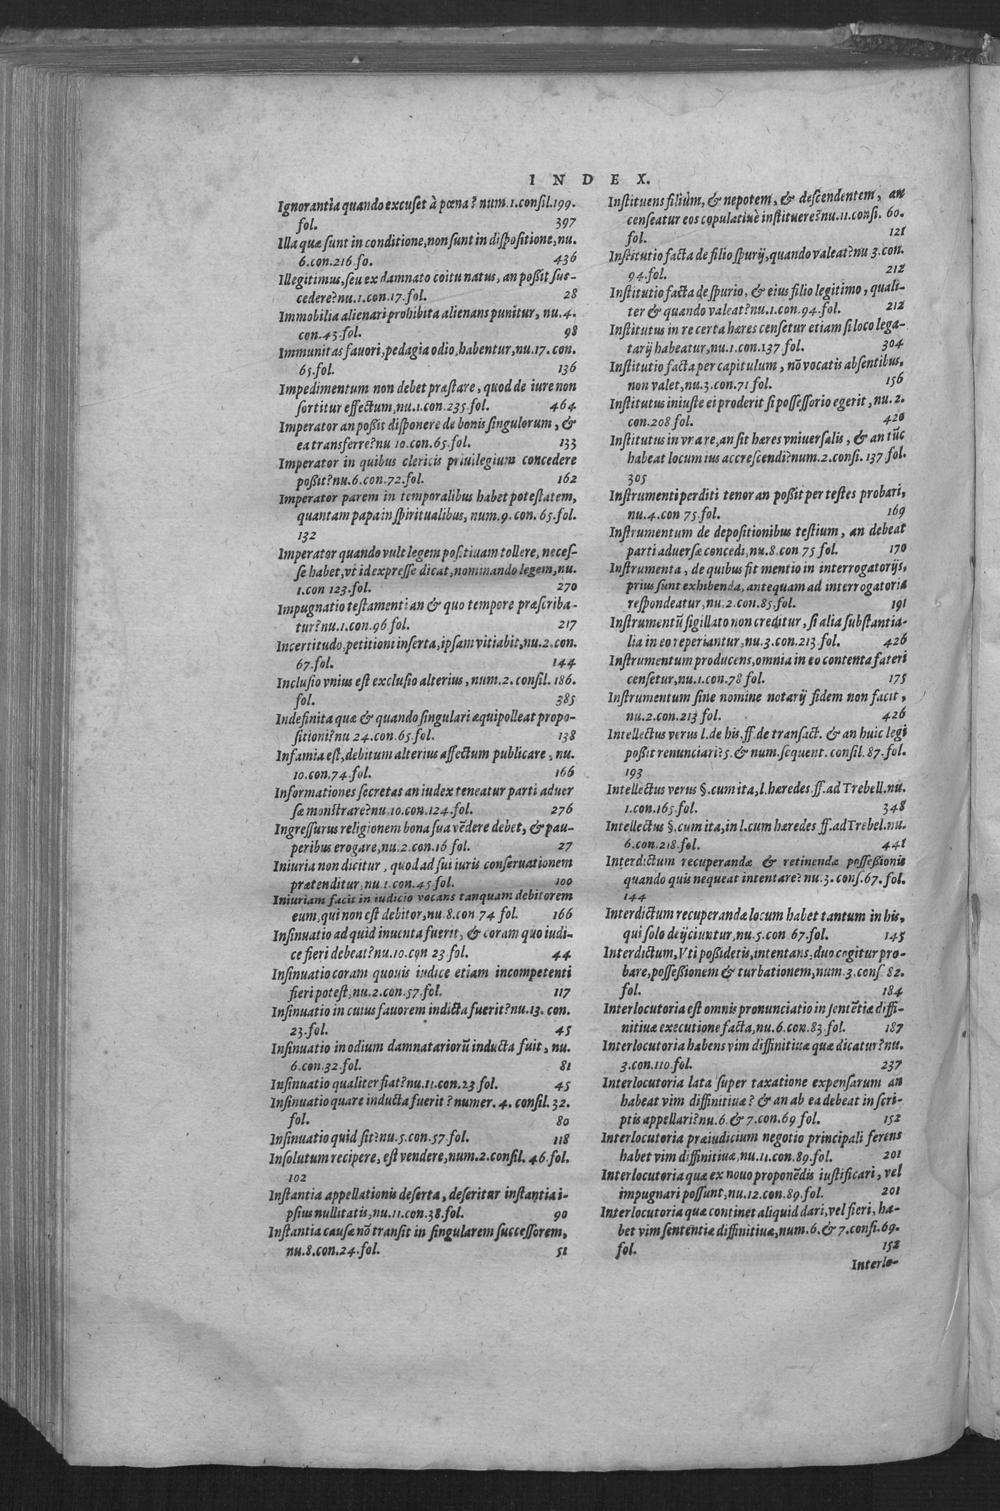 INDEX.
Ignorantia quando excuset à pœna? num.1.consil.199.
fol. 397
Illa quæ sunt in conditione, non sunt in dispositione, nu.
6.con.216.fo. 436
Illegitimus, seu ex damnato coitu natus, an possit suc-
cedere? nu.1.con.17.fol. 28
Immobilia alienari prohibita alienans punitur, nu.4.
con.43.fol. 98
Immunitas fauori, pedagia odio, habentur, nu.17. con.
65.fol. 136
Impedimentum non debet præstare, quod de iure non
sortitur effectum, nu.1.con.235.fol. 464
Imperator an possit disponere de bonis singulorum, &
ea transferre? nu 10.con.65.fol. 133
Imperator in quibus clericis priuilegium concedere
possit? nu.6.con.72.fol. 162
Imperator parem in temporalibus habet potestatem,
quantam papa in spiritualibus, num.9. con. 65.fol.
132
Imperator quando vult legem positiuam tollere, neces-
se habet, vt id expresse dicat, nominando legem, nu.
1.con 123.fol. 270
Impugnatio testamenti an & quo tempore præscriba-
tur? nu.1.con.96 fol. 217
Incertitudo, petitioni inserta, ipsam vitiabit, nu.2.con.
67.fol. 144
Inclusio vnius est exclusio alterius, num.2. consil. 186.
fol. 385
Indefinita quæ & quando singulari æquipolleat propo-
sitioni? nu 24.con.65.fol. 138
Infamia est, debitum alterius affectum publicare, nu.
10.con.74.fol. 166
Informationes secretas an iudex teneatur parti aduer
sæ monstrare? nu.10.con.124.fol. 276
Ingressurus religionem bona sua vẽdere debet, & pau-
peribus erogare, nu.2.con.16 fol. 27
Iniuria non dicitur, quod ad sui iuris conseruationem
prætenditur, nu 1.con.45 fol. 100
Iniuriam facit in iudicio vocans tanquam debitorem
eum, qui non est debitor, nu 8.con 74 fol. 166
Insinuatio ad quid inuenta fuerit, & coram quo iudi-
ce fieri debeat? nu.10.con 23 fol. 44
Insinuatio coram quouis iudice etiam incompetenti
fieri potest, nu.2.con.57.fol. 117
Insinuatio in cuius fauorem indicta fuerit? nu.13. con.
23.fol. 45
Insinuatio in odium damnatariorũ inducta fuit, nu.
6.con.32.fol. 81
Insinuatio qualiter fiat? nu.11.con.23 fol. 45
Insinuatio quare inducta fuerit? numer. 4. consil.32.
fol. 80
Insinuatio quid sit? nu.5.con.57.fol. 118
Insolutum recipere, est vendere, num.2.consil. 46.fol.
102
Instantia appellationis deserta, deseritur instantia i-
psius nullitatis, nu.11.con.38.fol. 90
Instantia causæ nõ transit in singularem successorem,
nu.8.con.24.fol. 51
Instituens filium, & nepotem, & descendentem, an
censeatur eos copulatiuè instituere? nu.11.consi. 60.
fol. 121
Institutio facta de filio spurij, quando valeat? nu 3.con.
94.fol. 212
Institutio facta de spurio, & eius filio legitimo, quali-
ter & quando valeat? nu.1.con.94.fol. 212
Institutus in re certa hæres censetur etiam si loco lega-
tarij habeatur, nu.1.con.137 fol. 304
Institutio facta per capitulum, nõ vocatis absentibus,
non valet, nu.3.con.71 fol. 156
Institutus iniuste ei proderit si possessorio egerit, nu.2.
con.208 fol. 420
Institutus in vra re, an sit hæres vniuersalis, & an tũc
habeat locum ius accrescendi? num.2.consi. 137 fol.
305
Instrumenti perditi tenor an possit per testes probari,
nu.4.con 75.fol. 169
Instrumentum de depositionibus testium, an debeat
parti aduersæ concedi, nu.8.con 75 fol. 170
Instrumenta, de quibus fit mentio in interrogatorijs,
prius sunt exhibenda, antequam ad interrogatoria
respondeatur, nu.2.con.85.fol. 191
Instrumentũ sigillato non creditur, si alia substantia-
lia in eo reperiantur, nu.3.con.213 fol. 426
Instrumentum producens, omnia in eo contenta fateri
censetur, nu.1.con.78 fol. 175
Instrumentum sine nomine notarij fidem non facit,
nu.2.con.213 fol. 426
Intellectus verus l.de his.ff.de transact. & an huic legi
possit renunciari? 5. & num.sequent. consil. 87.fol.
193
Intellectus verus §.cum ita, l.hæredes.ff.ad Trebell.nu.
1.con.165.fol. 348
Intellectus §.cum ita, in l.cum hæredes ff.ad Trebel.nu.
6.con.218.fol. 441
Interdictum recuperandæ & retinendæ possessionis
quando quis nequeat intentare? nu.3. cons.67.fol.
144
Interdictum recuperandæ locum habet tantum in his,
qui solo deijciuntur, nu.5.con 67.fol. 145
Interdictum, Vti possidetis, intentans, duo cogitur pro-
bare, possessionem & turbationem, num.3.cons 82.
fol. 184
Interlocutoria est omnis pronunciatio in sentẽtiæ diffi-
nitiuæ executione facta, nu.6.con.83.fol. 187
Interlocutoria habens vim diffinitiuæ quæ dicatur? nu.
3.con.110.fol. 237
Interlocutoria lata super taxatione expensarum an
habeat vim diffinitiuæ? & an ab ea debeat in scri-
ptis appellari? nu.6 & 7.con.69 fol. 152
Interlocutoria præiudicium negotio principali ferens
habet vim diffinitiuæ, nu.11.con.89.fol. 201
Interlocutoria quæ ex nouo proponẽdis iustificari, vel
impugnari possunt, nu.12.con.89.fol. 201
Interlocutoria quæ continet aliquid dari, vel fieri, ha-
bet vim sententiæ diffinitiuæ, num.6.& 7.consi.69.
fol. 152
Interlo-